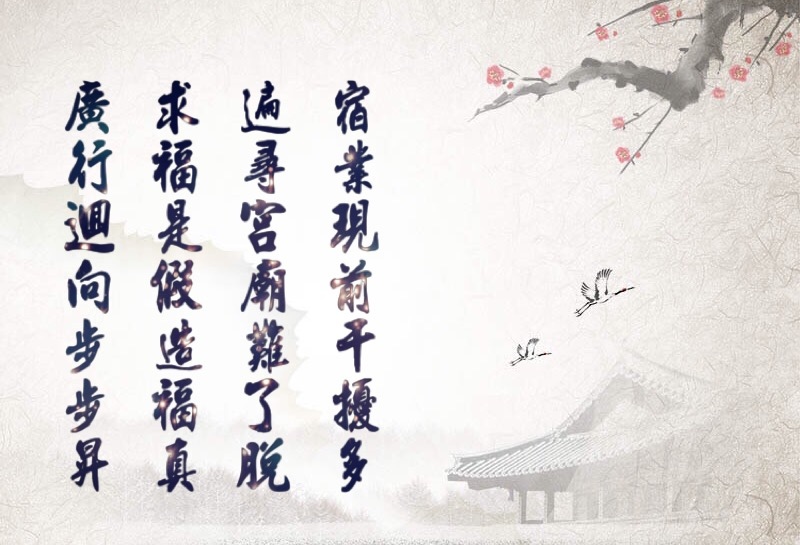 宿業現前干擾多
遍尋宮廟難了脫
求福是假造福真
廣行迴向步步昇